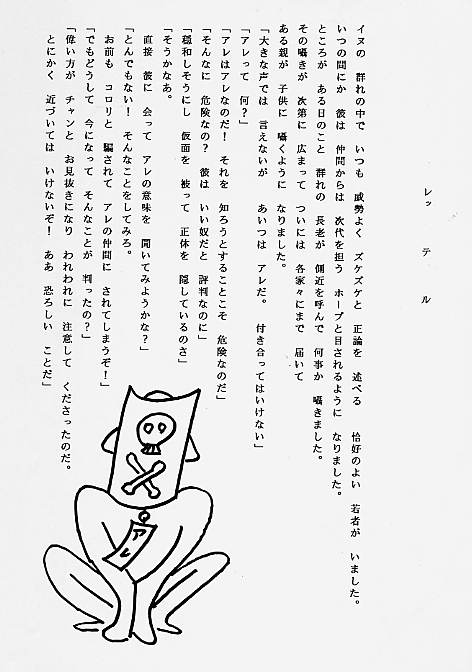 レッテル
イヌの 群れの中で いつも 威勢よく ズケズケと 正論を 述べる 恰好のよい 若者が いました。
いつの間にか 彼は 仲間からは 次代を担う ホープと目されるように なりました。
ところが ある日のこと 群れの 長老が 側近を呼んで 何事か 囁きました。
その囁きが 次第に 広まって ついには 各家々にまで 届いて
ある親が 子供に 囁くように なりました。
「大きな声では 言えないが あいつは アレだ。 付き合ってはいけない」
「アレって 何?」
「アレはアレなのだ! それを 知ろうとすることこそ 危険なのだ」
「そんなに 危険なの? 彼は いい奴だと 評判なのに」
「穏和しそうにし 仮面を 被って 正体を 隠しているのさ」
「そうかなあ。
直接 彼に 会って アレの意味を 聞いてみようかな?」
「とんでもない! そんなことをしてみろ。
お前も コロリと 騙されて アレの仲間に されてしまうぞ!」
「でもどうして 今になって そんなことが 判ったの?」
「偉い方が チャンと お見抜きになり われわれに 注意して くださったのだ。
とにかく 近づいては いけないぞ! ああ 恐ろしい ことだ」
アレ